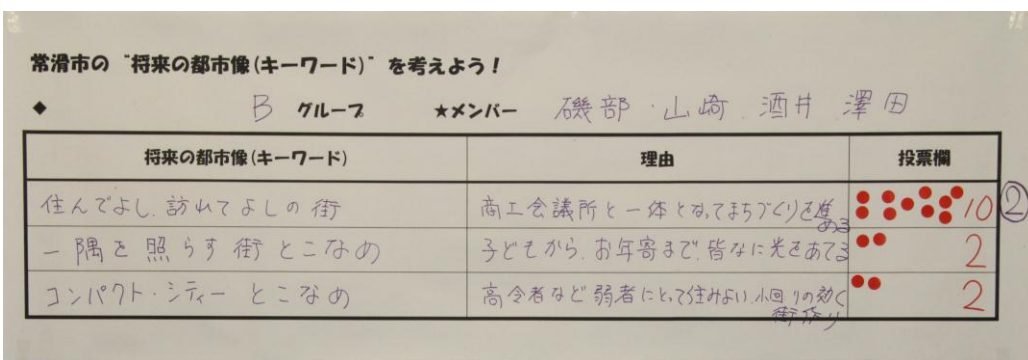 常滑市の"将来の都市像(キーワード)"を考えよう!
◆ B グループ ★メンバー 磯部・山崎 酒井 澤田
将来の都市像(キーワード) 理由 投票欄
住んでよし、訪れてよしの街 商工会議所と一体となってまちづくりを進める 10 ②
一隅を照らす街とこなめ 子どもから、お年寄まで、皆なに光をあてる 2
コンパクト・シティー とこなめ 高令者など弱者にとって住みよい、小回りの効く街作り 2